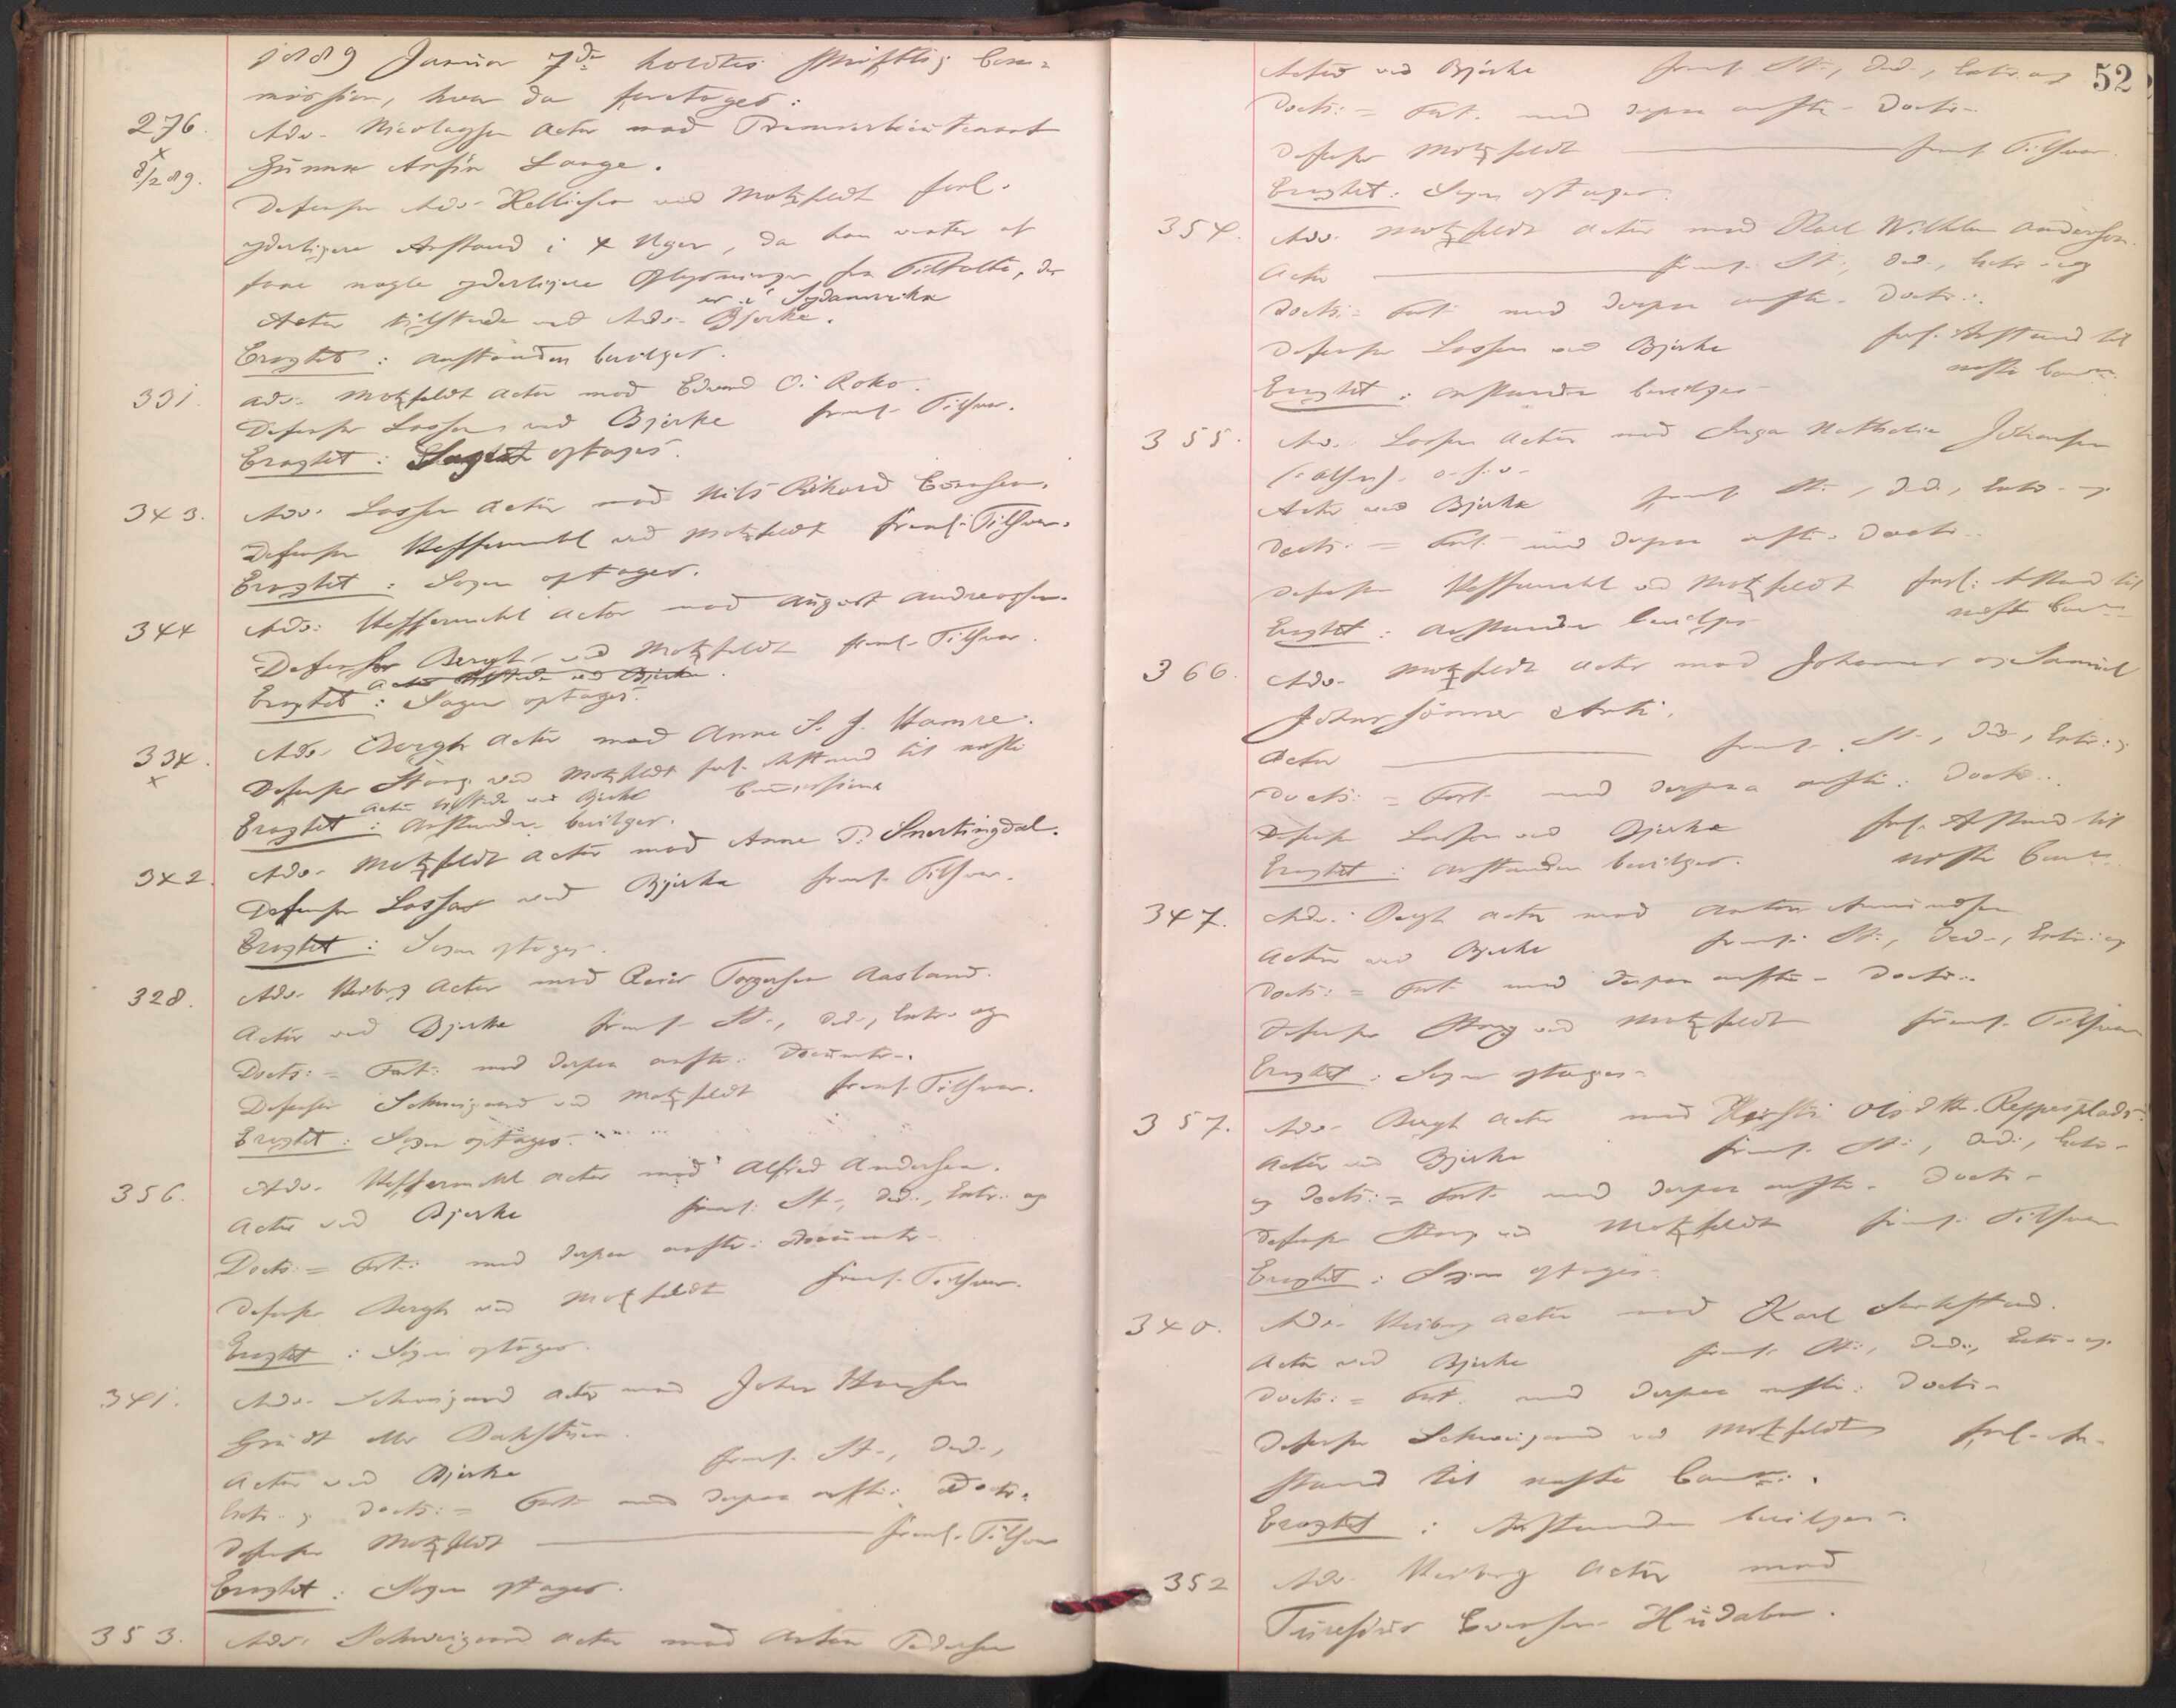 1889 Januar 7de holdtes skriftlig Com-
mission, hvor da foretoges:
276. Adv. Nicolaysen Actor mod Premierlieutenant
x
8/2 89. Gunnar Arfin Lange.
Defensor Adv. Helliesen ved Motzfeldt forl.
yderligere Anstand i 4 Uger, da han venter at
faae nogle yderligere Oplysninger fra Tiltalte, der
er i Sydamerika
Actor tilstede ved Adv. Bjerke.
Eragtet: Anstanden bevilges.
331. Adv. Motzfeldt Actor mod Edvard O. Roko.
Defensor Lassen ved Bjerke freml. Tilsvar.
Eragtet: Sagen optages.
343. Adv. Lassen Actor mod Nils Rikard
Defensor Heffermehl ved Motzfeldt freml. Tilsvar.
Eragtet: Sagen optages.
344 Adv. Heffermehl Actor mod August Andreassen.
Defensor Bergh ved Motzfeldt freml. Tilsvar.
Actor tilstede ved Bjerke.
Eragtet: Sagen optages.
334. Adv. Bergh Actor mod Anne S. J. Hamre.
x
Defensor Stang ved Motzfeldt forl. Anstand til næste
Actor tilstede ved Bjerke Commission
Eragtet: Anstanden bevilges.
342. Adv. Motzfeldt Actor mod Anne P. Snertingdal.
Defensor Lassen ved Bjerke freml. Tilsvar.
Eragtet: Sagen optages.
328. Adv. Heiberg Actor mod Torgersen Aasland.
Actor ved Bjerke freml. St., Ded., Extr. og
Docts: = Fort. med derpaa anførte Documenter.
Defensor Schweigaard ved Motzfeldt freml. Tilsvar.
Eragtet: Sagen optages.
356. Adv. Heffermehl Actor mod Alfred Andersen.
Actor ved Bjerke freml. St., Ded., Extr. og
Docts: = Fort. med derpaa anførte Documenter.
Defensor Bergh ved Motzfeldt freml. Tilsvar.
Eragtet: Sagen optages.
341. Adv. Schweigaard Actor mod Johan Hansen
Grudt eller
Actor ved Bjerke freml. St., Ded.,
Extr. og Docts: = Fort. med derpaa anførte Docts.
Defensor Motzfeldt freml. Tilsvar
Eragtet: Sagen optages.
353. Adv. Schweigaard Actor mod Anton Pedersen
52
Actor ved Bjerke freml. St., Ded., Extr. og
Docts: = Fort. med derpaa anførte Docts.
Defensor Motzfeldt freml. Tilsvar.
Eragtet: Sagen optages.
354. Adv. Motzfeldt Actor mod Karl Wilhelm Andersen.
Actor freml. St., Ded., Extr. og
Docts: Fort. med derpaa anførte Docts.
Defensor Lassen ved Bjerke forl. Anstand til
næste Comm.
Eragtet: Anstanden bevilges
355. Adv. Lassen Actor mod Inga Nathalie Johansen
(Olsen) o. s. v.
Actor ved Bjerke freml. St., Ded., Extr. og
Docts: = Fort. med derpaa anførte Docts.
Defensor Heffermehl ved Motzfeldt forl. Anstand til
næste Comm.
Eragtet: Anstanden bevilges
366. Adv. Motzfeldt Actor mod Johannes og Samuel
Johns sønner
Actor freml. St., Ded., Extr. og
Docts: = Fort. med derpaa anførte Docts.
Defensor Lassen ved Bjerke forl. Anstand til
næste Comm.
Eragtet: Anstanden bevilges.
347. Adv. Bergh Actor mod Anton Amundsen
Actor ved Bjerke freml. St., Ded., Extr. og
Docts: = Fort. med derpaa anførte Docts.
Defensor Stang ved Motzfeldt freml. Tilsvar
Eragtet: Sagen optages.
357. Adv. Bergh Actor mod Kjersti Olsdtr. Reppesplads.
Actor ved Bjerke freml. St., Ded., Extr.
og Docts: = Fort. med derpaa anførte Docts.
Defensor Stang ved Motzfeldt freml. Tilsvar
Eragtet: Sagen optages.
340. Adv. Heiberg Actor mod Karl
Actor ved Bjerke freml. St., Ded., Extr. og
Docts: = Fort. med derpaa anførte Docts.
Defensor Schweigaard ved Motzfeldt forl. An-
stand til næste Comm.
Eragtet: Anstanden bevilges.
352 Adv. Heiberg Actor mod
Evensen Hudalen.